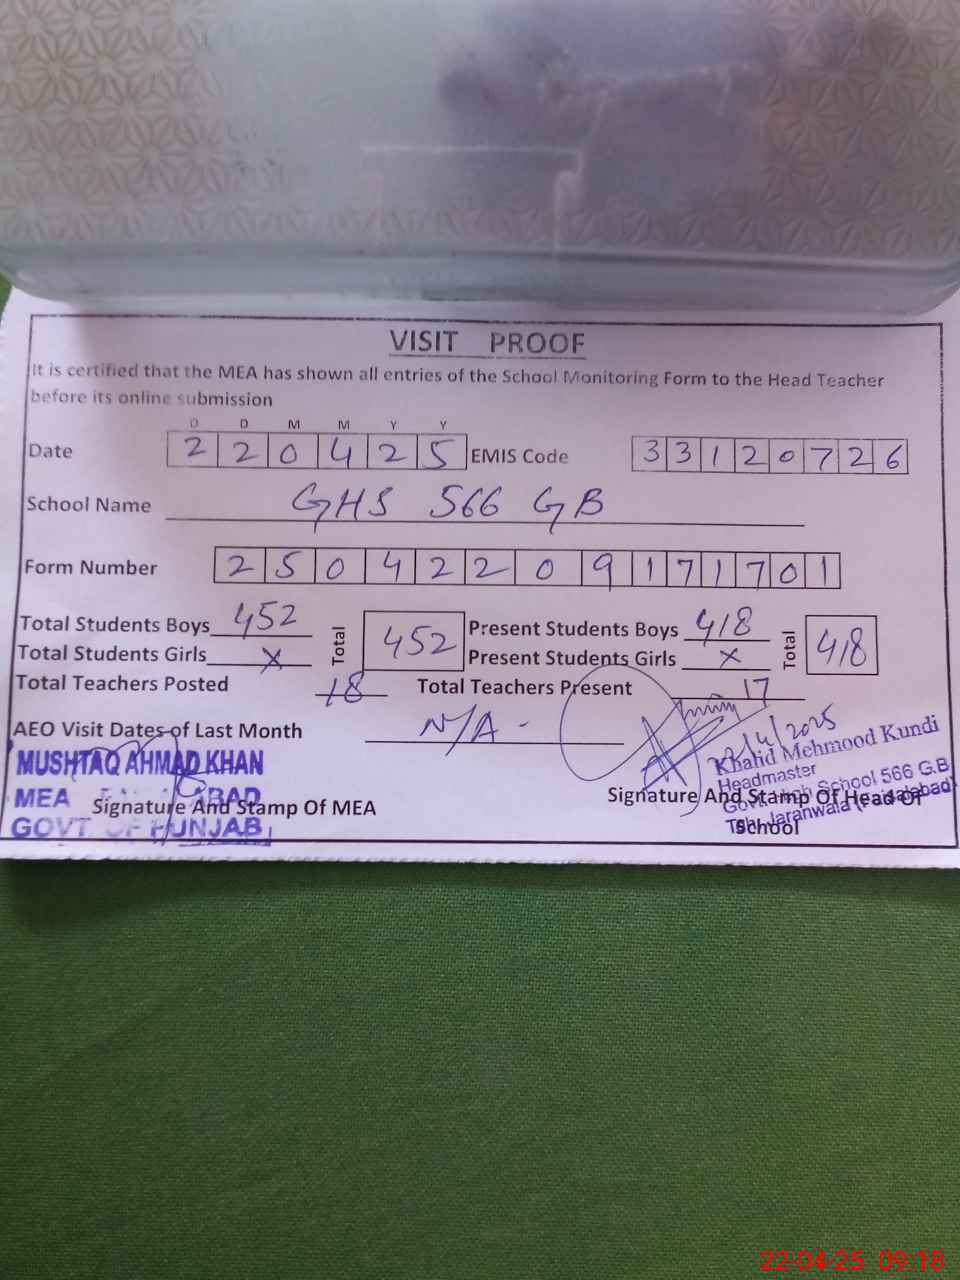 VISIT PROOF
It is certified that the MEA has shown all entries of the School Monitoring Form to the Head Teacher
before its online submission
D D M M Y Y
Date 2 2 0 4 2 5 EMIS Code 3 3 1 2 0 7 2 6
School Name GHS 566 GB
Form Number 2 5 0 4 2 2 0 9 1 7 1 7 0 1
Total Students Boys 452 Total 452 Present Students Boys 418 Total 418
Total Students Girls x Present Students Girls x
Total Teachers Posted 18 Total Teachers Present 17
AEO Visit Dates of Last Month N/A -
/4/2025
MUSHTAQ AHMAD KHAN
MEA
GOVT OF PUNJAB
Signature And Stamp Of MEA
Khalid Mehmood Kundi
Headmaster
Govt. High School 566 G.B
Teh. Jaranwala (Faisalabad)
Signature And Stamp Of Head Of
School
22-04-25 09:18